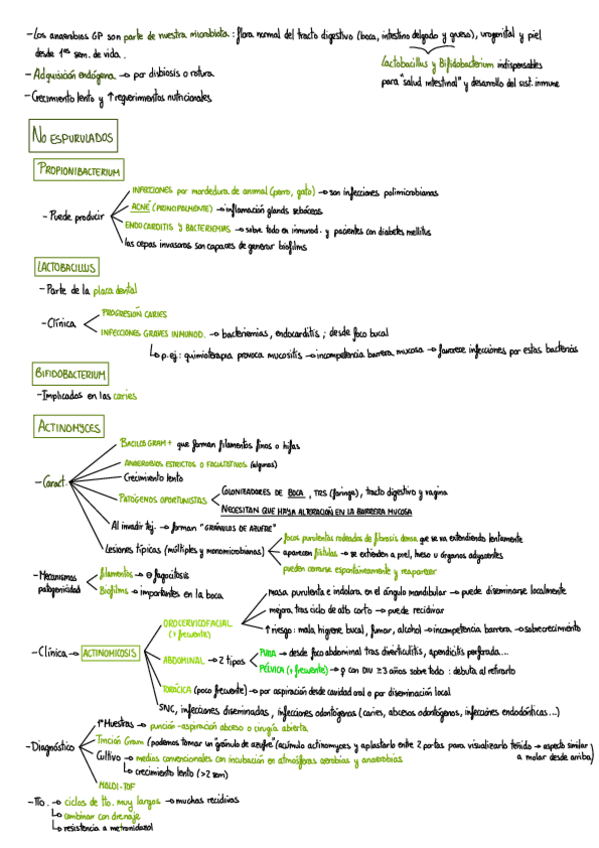 - Los anaerobios GP son parte de nuestra microbiota: flora normal del tracto digestivo (boca, intestino delgado y grueso), urogenital y piel
desde 1as sem. de vida.
Lactobacillus y Bifidobacterium indispensables
para "salud intestinal" y desarrollo del sist. inmune
- Adquisición endógena → por disbiosis o rotura
- Crecimiento lento y ↑ requerimientos nutricionales
NO ESPORULADOS
PROPIONIBACTERIUM
- Puede producir
INFECCIONES por mordedura de animal (perro, gato) → son infecciones polimicrobianas
ACNÉ (PRINCIPALMENTE) → inflamación glands sebáceas
ENDOCARDITIS Y BACTERIEMIAS → sobre todo en inmunod. y pacientes con diabetes mellitus
las cepas invasoras son capaces de generar biofilms
LACTOBACILLUS
- Parte de la placa dental
- Clínica
PROGRESIÓN CARIES
INFECCIONES GRAVES INMUNOD. → bacteriemias, endocarditis ; desde foco bucal
↳ p.ej: quimioterapia provoca mucositis → incompetencia barrera mucosa → favorece infecciones por estas bacterias
BIFIDOBACTERIUM
- Implicados en las caries
ACTINOMYCES
- Caract.
BACILOS GRAM+ que forman filamentos finos o hifas
ANAEROBIOS ESTRICTOS O FACULTATIVOS (algunas)
Crecimiento lento
PATÓGENOS OPORTUNISTAS
COLONIZADORES DE BOCA, TRS (faringe), tracto digestivo y vagina
NECESITAN QUE HAYA ALTERACIÓN EN LA BARRERA MUCOSA
Al invadir tej. → forman "GRÁNULOS DE AZUFRE"
Lesiones típicas (múltiples y monomicrobianas)
focos purulentos rodeados de fibrosis densa que se va extendiendo lentamente
aparecen fístulas → se extienden a piel, hueso u órganos adyacentes
pueden cerrarse espontáneamente y reaparecer
- Mecanismos
patogenicidad
filamentos → ⊖ fagocitosis
Biofilms → importantes en la boca
- Clínica → ACTINOMICOSIS
OROCERVICOFACIAL
(+ frecuente)
masa purulenta e indolora en el ángulo mandibular → puede diseminarse localmente
mejora tras ciclo de atb corto → puede recidivar
↑ riesgo: mala higiene bucal, fumar, alcohol → incompetencia barrera → sobrecrecimiento
ABDOMINAL → 2 tipos
PURA → desde foco abdominal tras diverticulitis, apendicitis perforada...
PÉLVICA (+ frecuente) → ♀ con DIU ≥ 3 años sobre todo : debuta al retirarlo
TORÁCICA (poco frecuente) → por aspiración desde cavidad oral o por diseminación local
SNC, infecciones diseminadas, infecciones odontógenas (caries, abscesos odontógenos, infecciones endodónticas...)
- Diagnóstico
Muestras → punción-aspiración absceso o cirugía abierta
Tinción Gram (podemos tomar un gránulo de azufre (acúmulo actinomyces y aplastarlo entre 2 portas para visualizarlo teñido → aspecto similar
a molar desde arriba)
Cultivo → medios convencionales con incubación en atmósferas aerobias y anaerobias
↳ crecimiento lento (>2 sem)
MALDI-TOF
- Tto. → ciclos de tto. muy largos → muchas recidivas
↳ combinar con drenaje
↳ resistencia a metronidazol